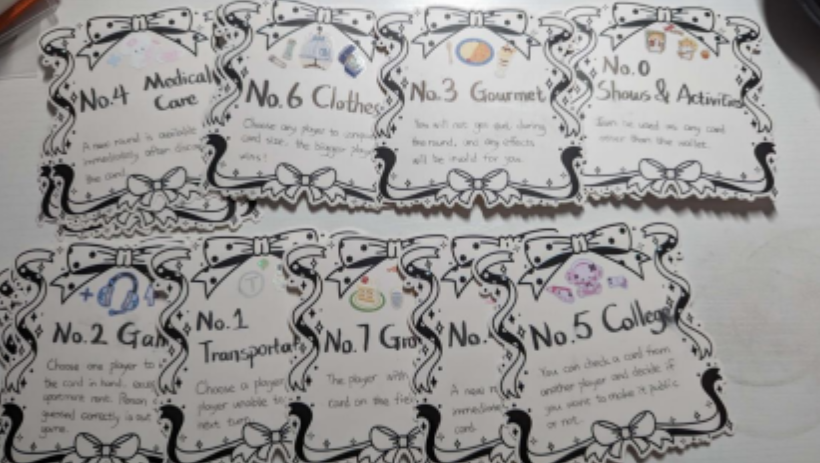 No.4 Medical
Care
A new round is available
immediately after
the card.
No.6 Clothes
Choose any player to
card size, the bigger
wins!
No.3 Gourmet
You will not get out during
the round, and any effects
will be invalid for you.
No.0
Shows & Activities
used as any card
other than the wallet.
No.2
Choose one player to
the card in hand,
Person
guessed correctly is out
game.
No.1
Choose a player
player unable to
next
No.7
The player with
card on the
No.
A new
card.
No.5 College
You can check a card from
another player and decide if
you want to make it public
or not.